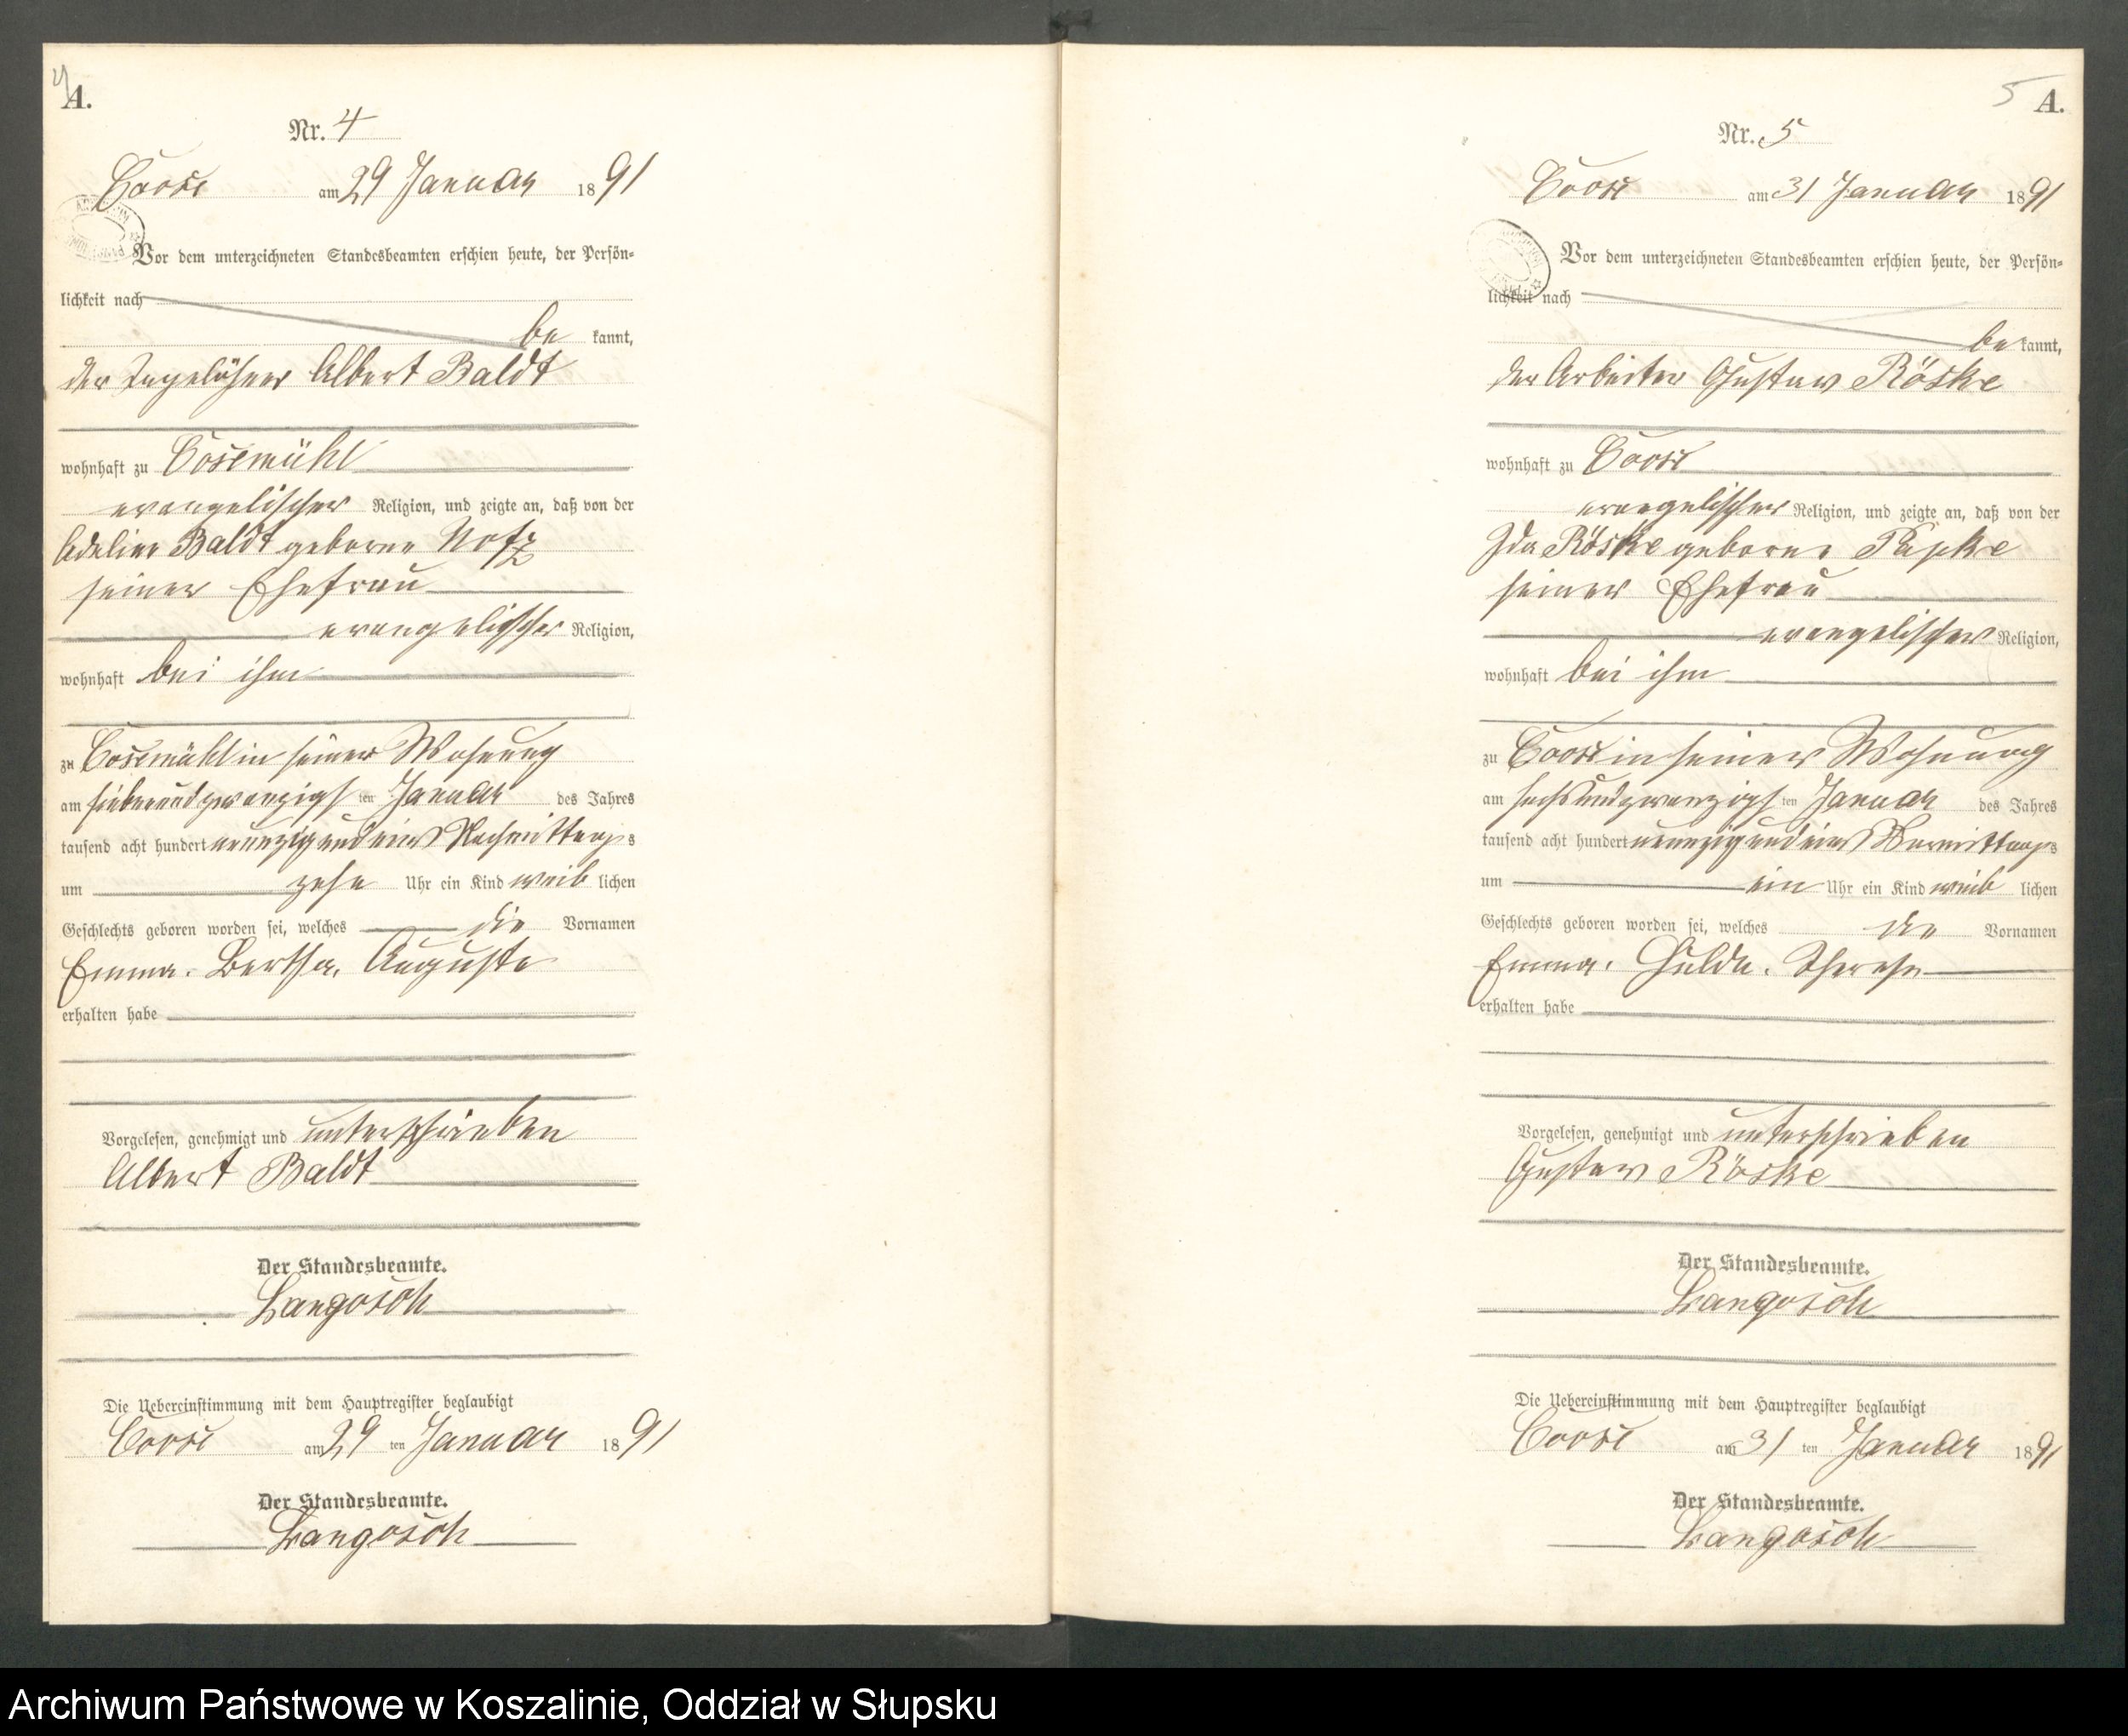 4
A.
Nr. 4
Coose am 29 Januar 1891
Vor dem unterzeichneten Standesbeamten erschien heute, der Persön-
lichkeit nach
be kannt,
der Tagelöhner Albert Baldt
wohnhaft zu Cosemühl
evangelischer Religion, und zeigte an, daß von der
Adeline Baldt geborne
seiner Ehefrau
evangelischer Religion,
wohnhaft bei ihm
zu Cosemühl in seiner Wohnung
am siebenundzwanzigsten Januar des Jahres
tausend acht hundert neunzig und eins Nachmittags
um zehn Uhr ein Kind weiblichen
Geschlechts geboren worden sei, welches die Vornamen
Emma. Bertha. Auguste
erhalten habe
Vorgelesen, genehmigt und unterschrieben
Albert Baldt
Der Standesbeamte.
Langosch
Die Uebereinstimmung mit dem Hauptregister beglaubigt
Coose am 29 ten Januar 1891
Der Standesbeamte.
Langosch
5
A.
Nr. 5
Coose am 31 Januar 1891
Vor dem unterzeichneten Standesbeamten erschien heute, der Persön-
lichkeit nach
be kannt,
der Arbeiter Gustav Röske
wohnhaft zu Coose
evangelischer Religion, und zeigte an, daß von der
Ida Röske geborne Papke
seiner Ehefrau
evangelischer Religion,
wohnhaft bei ihm
zu Coose in seiner Wohnung
am sechsundzwanzigsten Januar des Jahres
tausend acht hundert neunzig und eins Vormittags
um ein Uhr ein Kind weiblichen
Geschlechts geboren worden sei, welches die Vornamen
Emma. Hulda. Therese
erhalten habe
Vorgelesen, genehmigt und unterschrieben
Gustav Röske
Der Standesbeamte.
Langosch
Die Uebereinstimmung mit dem Hauptregister beglaubigt
Coose am 31 ten Januar 1891
Der Standesbeamte.
Langosch
Archiwum Państwowe w Koszalinie, Oddział w Słupsku